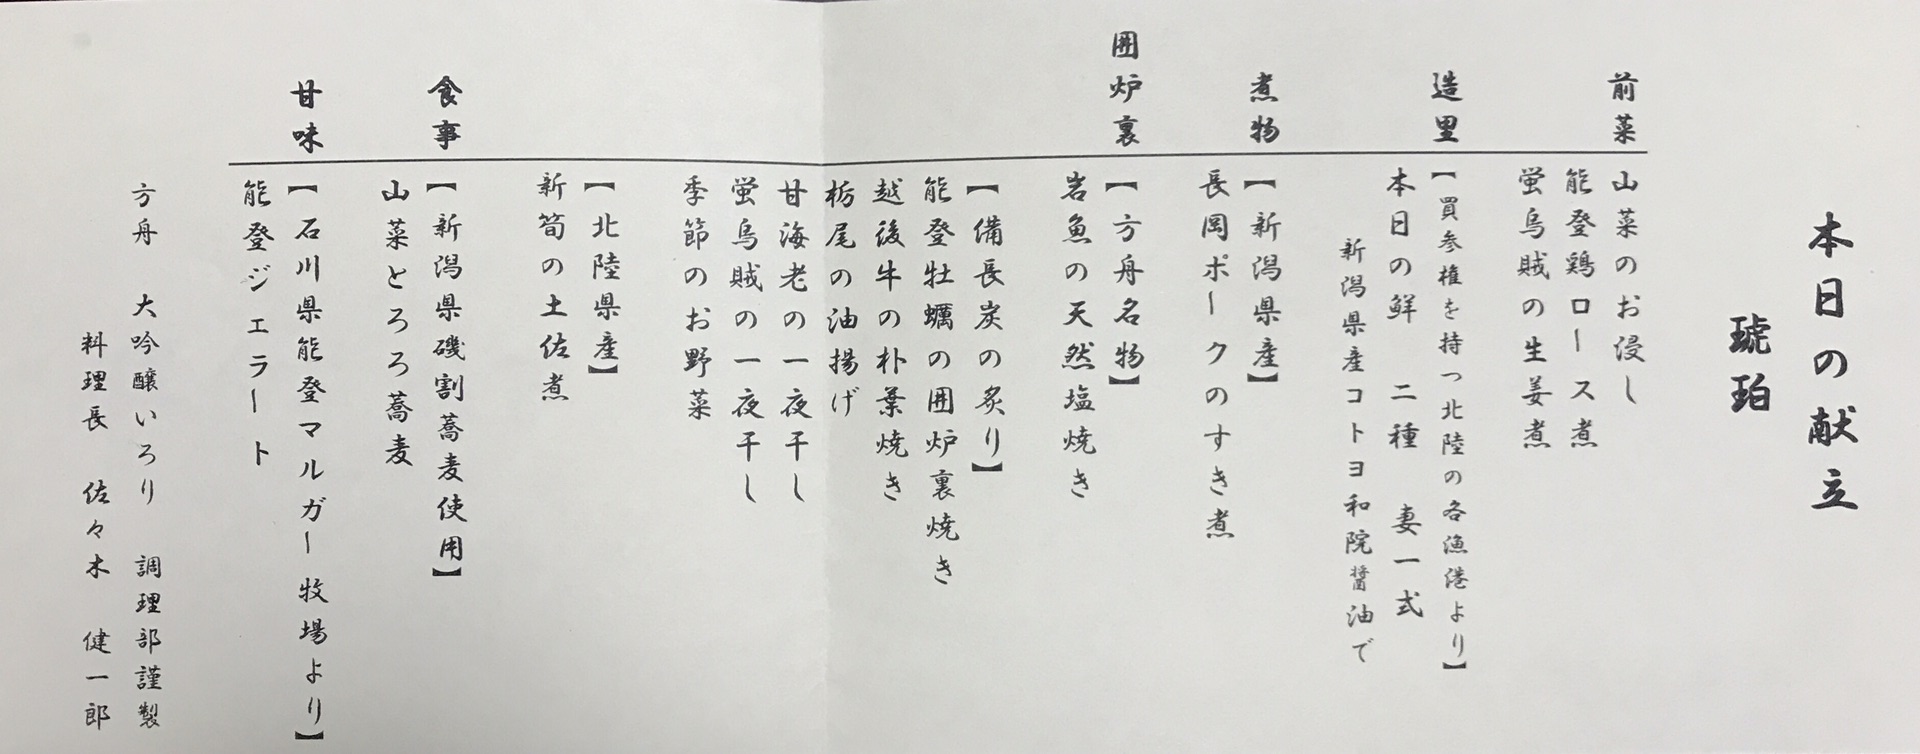 本日の献立
琥珀
前菜
山菜のお浸し
能登鶏ロース煮
蛍烏賊の生姜煮
造里
【買参権を持つ北陸の各漁港より】
本日の鮮　二種　妻一式
新潟県産コトヨ和院醤油で
煮物
【新潟県産】
長岡ポークのすき煮
囲炉裏
【方舟名物】
岩魚の天然塩焼き
【備長炭の炙り】
能登牡蠣の囲炉裏焼き
越後牛の朴葉焼き
栃尾の油揚げ
甘海老の一夜干し
蛍烏賊の一夜干し
季節のお野菜
【北陸県産】
新筍の土佐煮
食事
【新潟県磯割蕎麦使用】
山菜とろろ蕎麦
甘味
【石川県能登マルガー牧場より】
能登ジェラート
方舟　大吟醸いろり　調理部謹製
料理長　佐々木　健一郎